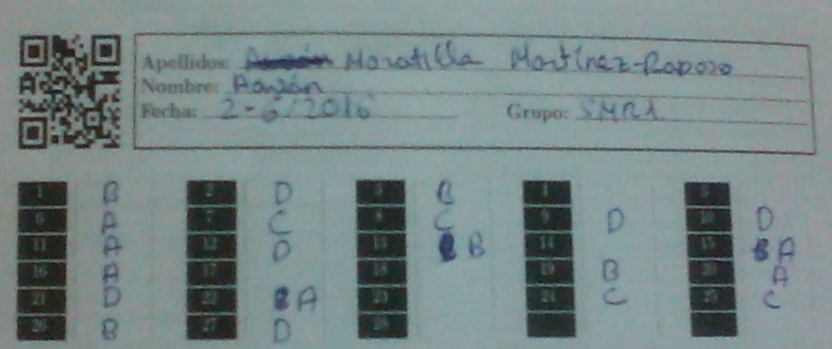 Apellidos: Moratilla Martínez-Raposo
Nombre: Ramón
Fecha: 2-6/2016 Grupo: SMR1
1 B 2 D 3 B 4 5
6 A 7 C 8 C 9 D 10 D
11 A 12 D 13 B 14 15 A
16 A 17 18 19 B 20 A
21 D 22 A 23 24 C 25 C
26 B 27 D 28